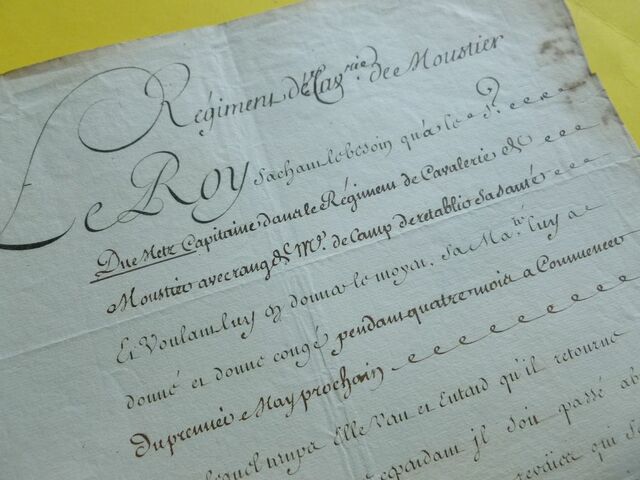 Régiment de Cav.rie de Moustier
Le Roy Sachant le besoin qu'a le S.r
Du Metz Capitaine dans le Régiment de Cavalerie de
Moustier avec rang de M.e de Camp de rétablir sa santé
Et Voulant luy en donner le moyen, Sa Ma.té luy a
donné et donne congé pendant quatre mois a Commencer
du premier May prochain
lequel temps Elle Veut et Entend qu'il retourne
cependant il soit passé